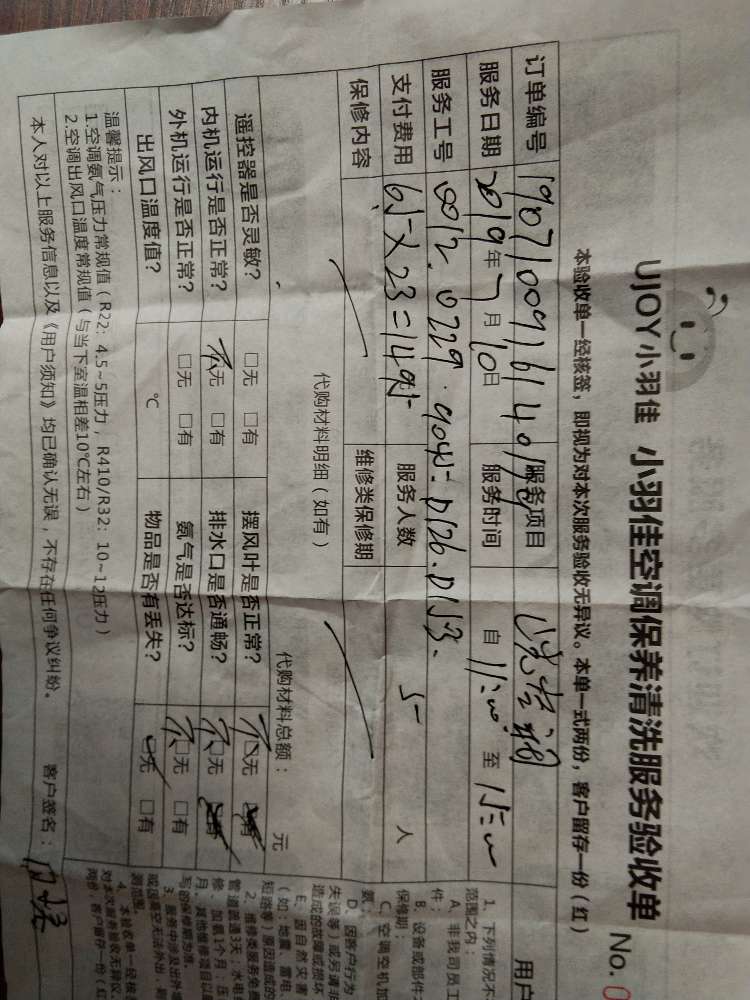 UJOY小羽佳 小羽佳空调保养清洗服务验收单 No. 0
本验收单一经核签，即视为对本次服务验收无异议。本单一式两份，客户留存一份（红）
订单编号 服务项目
服务日期 2019年7月10日 服务时间 自 11:00 至 15:00
服务工号 0012. 0229. 9045. D126. D153.
支付费用 65×23=1495 服务人数 5 人
保修内容 维修类保修期
代购材料明细（如有） 代购材料总额： 元
遥控器是否灵敏？ □无 □有 摆风叶是否正常？ □无 □有
内机运行是否正常？ □无 □有 排水口是否通畅？ □无 □有
外机运行是否正常？ □无 □有 氨气是否达标？ □无 □有
出风口温度值？ ℃ 物品是否有丢失？ □无 □有
温馨提示：
1.空调氨气压力常规值（R22：4.5~5压力，R410/R32：10~12压力）
2.空调出风口温度常规值（与当下室温相差10℃左右）
本人对以上服务信息以及《用户须知》均已确认无误，不存在任何争议纠纷。 客户签名：
用户
1、下列情况不
范围之内：
A、非我司员工
件；
B、设备或部件
保修期；
C、空调空机加
氨；
D、因客户行为
失误等）或另请非
造成的故障或损坏
E、因自然灾害
（如：地震、雷电、
短路等）原因造成的
2、维修类服务免费
管道疏通3天；水电维
修、加氨1个月；压
月，其他维修项目以
写的保修期为准。
3、服务中涉及出外墙
或因高空无法外出，则
测范围。
4、本验收单一经核
对本次服务验收无异议，
两份，客户留存一份（红